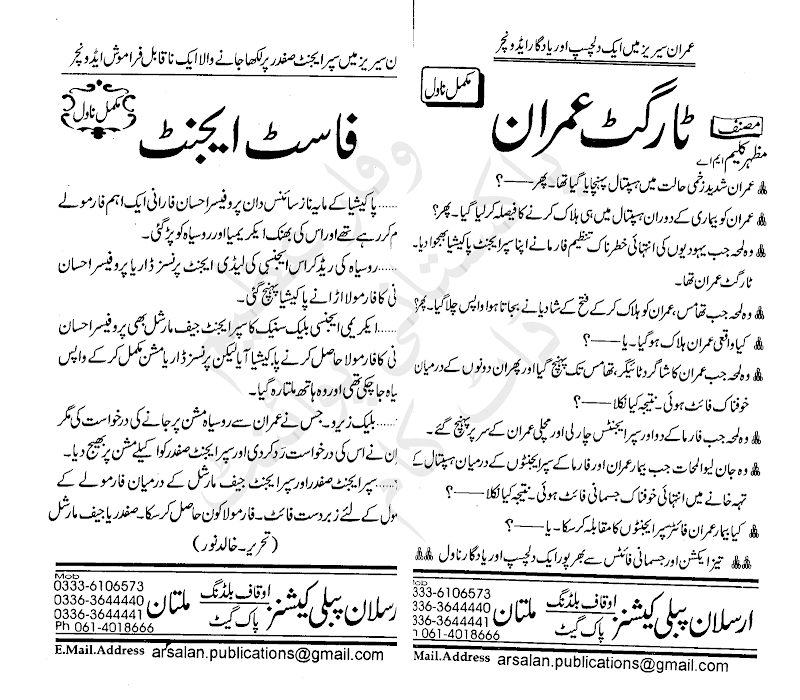 عمران سیریز میں ایک دلچسپ اور یادگار ایڈونچر
مکمل ناول
ٹارگٹ عمران
مصنف
مظہر کلیم ایم اے
عمران شدید زخمی حالت میں ہسپتال پہنچایا گیا تھا۔ پھر ——؟
عمران کو بیماری کے دوران ہسپتال میں ہی ہلاک کرنے کا فیصلہ کر لیا گیا۔ پھر؟
وہ لمحہ جب یہودیوں کی انتہائی خطرناک تنظیم فارما نے اپنا سپر ایجنٹ پاکیشیا بھجوا دیا۔
ٹارگٹ عمران تھا۔
وہ لمحہ جب تھامس، عمران کو ہلاک کر کے فتح کے شادیانے بجاتا ہوا واپس چلا گیا۔ پھر؟
کیا واقعی عمران ہلاک ہو گیا۔ یا ——؟
وہ لمحہ جب عمران کا شاگرد ٹائیگر، تھامس تک پہنچ گیا اور پھر ان دونوں کے درمیان
خوفناک فائٹ ہوئی۔ نتیجہ کیا نکلا ——؟
وہ لمحہ جب فارما کے دو اور سپر ایجنٹس چارلی اور مچلی عمران کے سر پر پہنچ گئے۔
وہ جان لیوا لمحات جب بیمار عمران اور فارما کے سپر ایجنٹوں کے درمیان ہسپتال کے
تہہ خانے میں انتہائی خوفناک جسمانی فائٹ ہوئی۔ نتیجہ کیا نکلا ——؟
کیا بیمار عمران فائٹر سپر ایجنٹوں کا مقابلہ کر سکا۔ یا ——؟
تیز ایکشن اور جسمانی فائٹس سے بھرپور ایک دلچسپ اور یادگار ناول
ارسلان پبلی کیشنز اوقاف بلڈنگ پاک گیٹ ملتان
Mob
0333-6106573
0336-3644440
0336-3644441
h 061-4018666
E.Mail.Address arsalan.publications@gmail.com
ن سیریز میں سپر ایجنٹ صفدر پر لکھا جانے والا ایک ناقابل فراموش ایڈونچر
مکمل ناول
فاسٹ ایجنٹ
...... پاکیشیا کے مایہ ناز سائنس دان پروفیسر احسان فارانی ایک اہم فارمولے
م کر رہے تھے اور اس کی بھنک ایکریمیا اور روسیاہ کو پڑ گئی۔
...... روسیاہ کی ریڈ کراس ایجنسی کی لیڈی ایجنٹ پرنسز ڈاریا پروفیسر احسان
نی کا فارمولا اڑانے پاکیشیا پہنچ گئی۔
...... ایکریمی ایجنسی بلیک سنیک کا سپر ایجنٹ جیف مارشل بھی پروفیسر احسان
نی کا فارمولا حاصل کرنے پاکیشیا آیا لیکن پرنسز ڈاریا مشن مکمل کر کے واپس
یاہ جا چکی تھی اور وہ ہاتھ ملتا رہ گیا۔
...... بلیک زیرو۔ جس نے عمران سے روسیاہ مشن پر جانے کی درخواست کی مگر
ان نے اس کی درخواست رد کر دی اور سپر ایجنٹ صفدر کو اکیلے مشن پر بھیج دیا۔
...... سپر ایجنٹ صفدر اور سپر ایجنٹ جیف مارشل کے درمیان فارمولے کے
ول کے لئے زبردست فائٹ۔ فارمولا کون حاصل کر سکا۔ صفدر یا جیف مارشل
(تحریر۔ خالد نور)
ارسلان پبلی کیشنز اوقاف بلڈنگ پاک گیٹ ملتان
Mob
0333-6106573
0336-3644440
0336-3644441
Ph 061-4018666
E.Mail.Address arsalan.publications@gmail.com